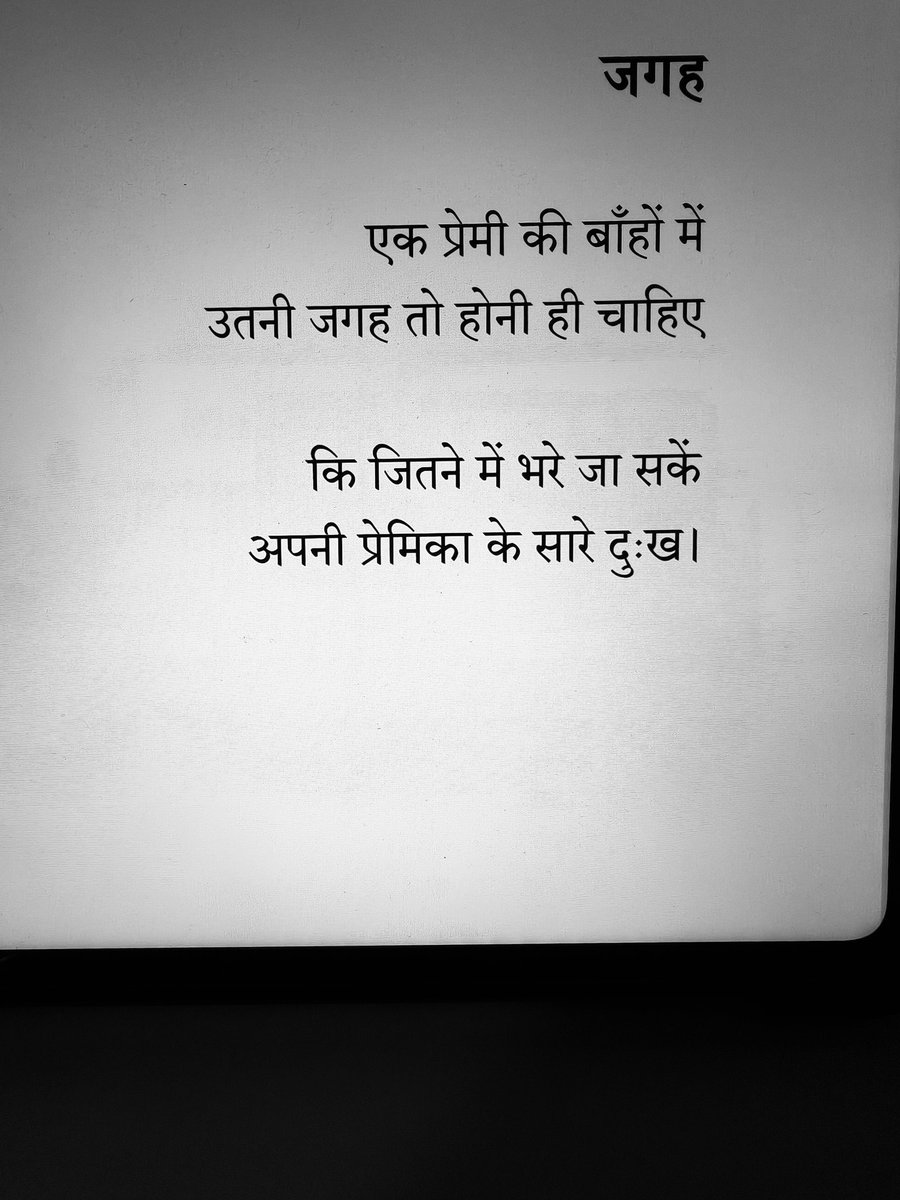 जगह
एक प्रेमी की बाँहों में
उतनी जगह तो होनी ही चाहिए
कि जितने में भरे जा सकें
अपनी प्रेमिका के सारे दुःख।